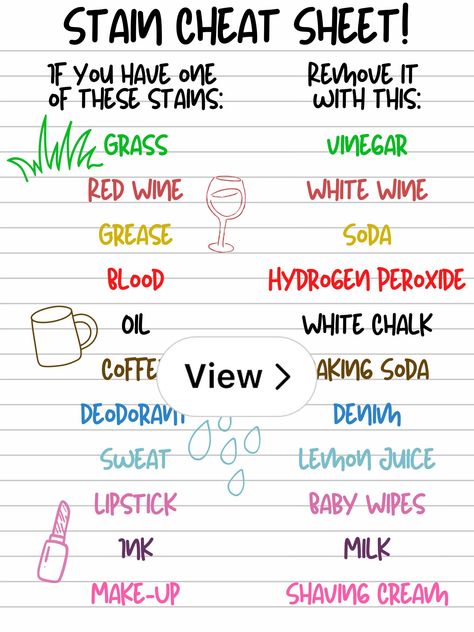 STAIN CHEAT SHEET!
IF YOU HAVE ONE OF THESE STAINS:
REMOVE IT WITH THIS:
GRASS VINEGAR
RED WINE WHITE WINE
GREASE SODA
BLOOD HYDROGEN PEROXIDE
OIL WHITE CHALK
COFFE AKING SODA
View >
DEODORANT DENIM
SWEAT LEMON JUICE
LIPSTICK BABY WIPES
INK MILK
MAKE-UP SHAVING CREAM